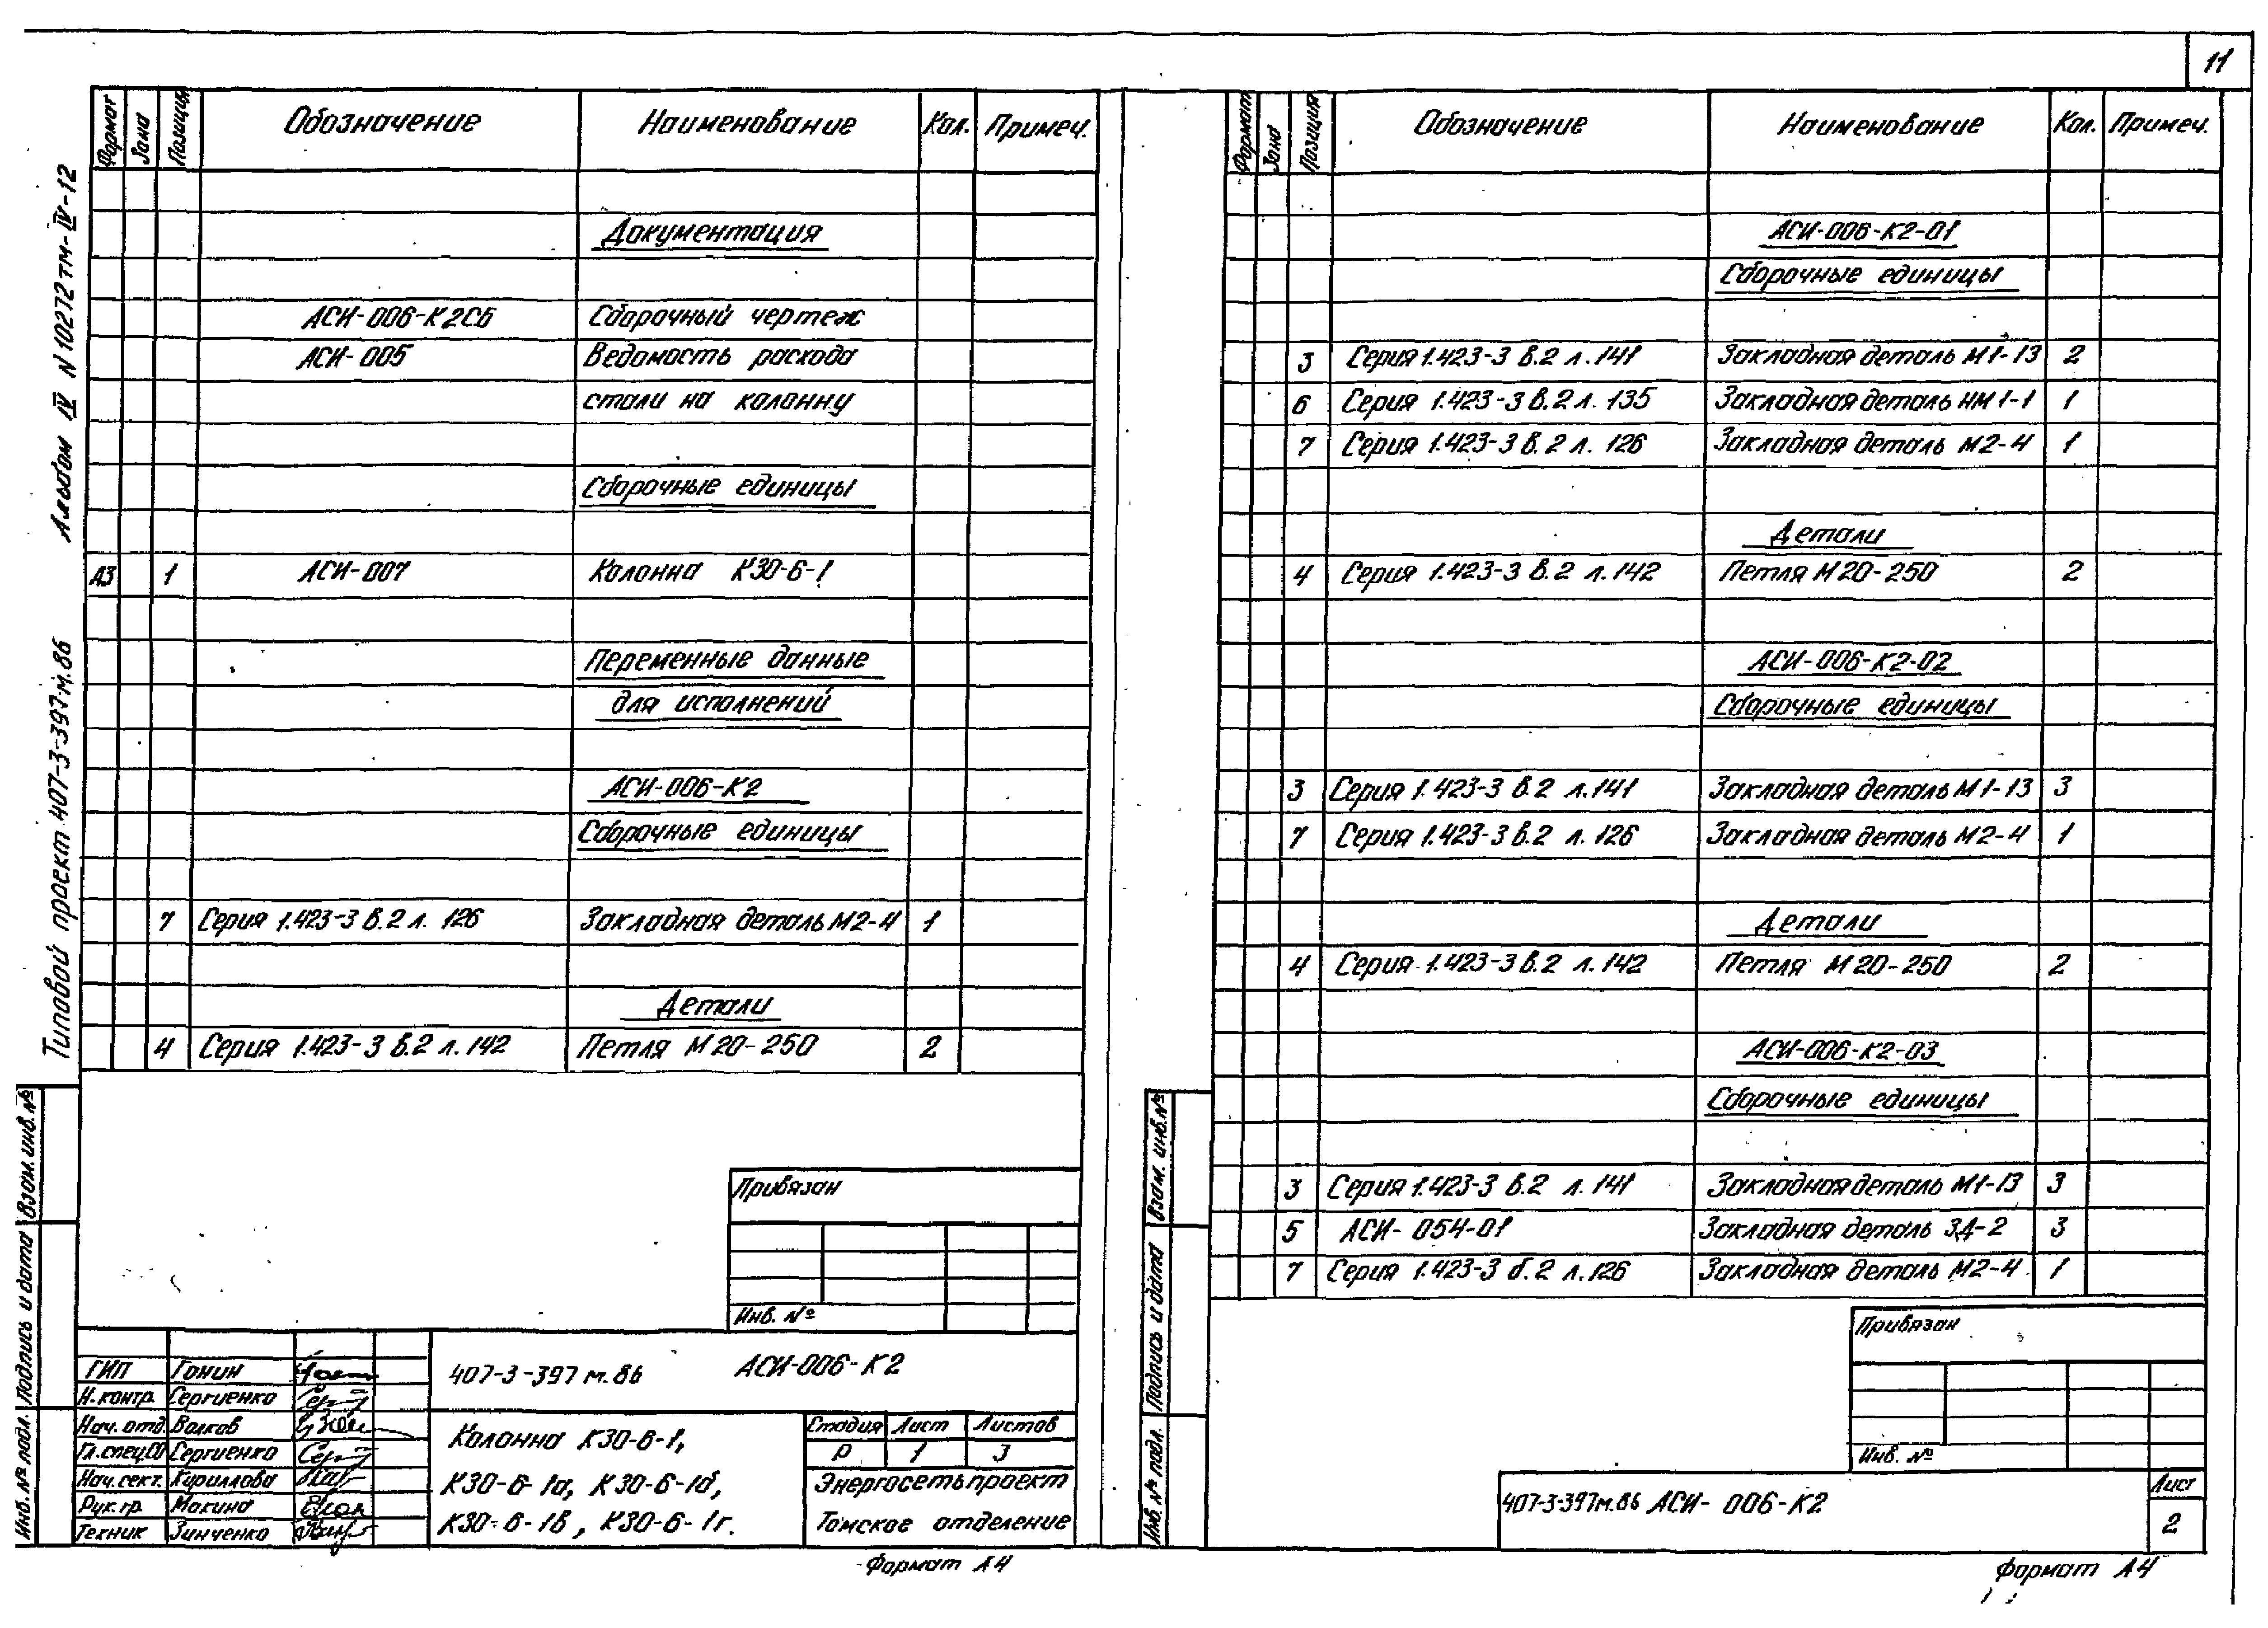 11
Альбом IV N 10272тм-IV-12
Типовой проект 407-3-397м.86
Формат Зона Позиция Обозначение Наименование Кол. Примеч.
Документация
АСИ-006-К2СБ Сборочный чертеж
АСИ-005 Ведомость расхода
стали на колонну
Сборочные единицы
А3 1 АСИ-007 Колонна К30-6-1
Переменные данные
для исполнений
АСИ-006-К2
Сборочные единицы
7 Серия 1.423-3 в.2 л. 126 Закладная деталь М2-4 1
Детали
4 Серия 1.423-3 в.2 л.142 Петля М20-250 2
Привязан
Инв. №
Взам. инв. №
Подпись и дата
Инв. № подл.
ГИП Гонин
Н.контр. Сергиенко
Нач. отд. Волков
Гл.спец.СО Сергиенко
Нач. сект. Кириллова
Рук. гр. Мокина
Техник Зинченко
407-3-397м.86 АСИ-006-К2
Колонна К30-6-1,
К30-6-1а, К30-6-1б,
К30-6-1в, К30-6-1г.
Стадия Лист Листов
Р 1 3
Энергосетьпроект
Томское отделение
Формат А4
Формат Зона Позиция Обозначение Наименование Кол. Примеч.
АСИ-006-К2-01
Сборочные единицы
3 Серия 1.423-3 в.2 л.141 Закладная деталь М1-13 2
6 Серия 1.423-3 в.2 л. 135 Закладная деталь НМ1-1 1
7 Серия 1.423-3 в.2 л. 126 Закладная деталь М2-4 1
Детали
4 Серия 1.423-3 в.2 л.142 Петля М20-250 2
АСИ-006-К2-02
Сборочные единицы
3 Серия 1.423-3 в.2 л.141 Закладная деталь М1-13 3
7 Серия 1.423-3 в.2 л. 126 Закладная деталь М2-4 1
Детали
4 Серия 1.423-3 в.2 л.142 Петля М20-250 2
АСИ-006-К2-03
Сборочные единицы
3 Серия 1.423-3 в.2 л. 141 Закладная деталь М1-13 3
5 АСИ-054-01 Закладная деталь ЗД-2 3
7 Серия 1.423-3 в.2 л.126 Закладная деталь М2-4 1
Привязан
Инв. №
Взам. инв. №
Подпись и дата
Инв. № подл.
407-3-397м.86 АСИ-006-К2
Лист
2
Формат А4